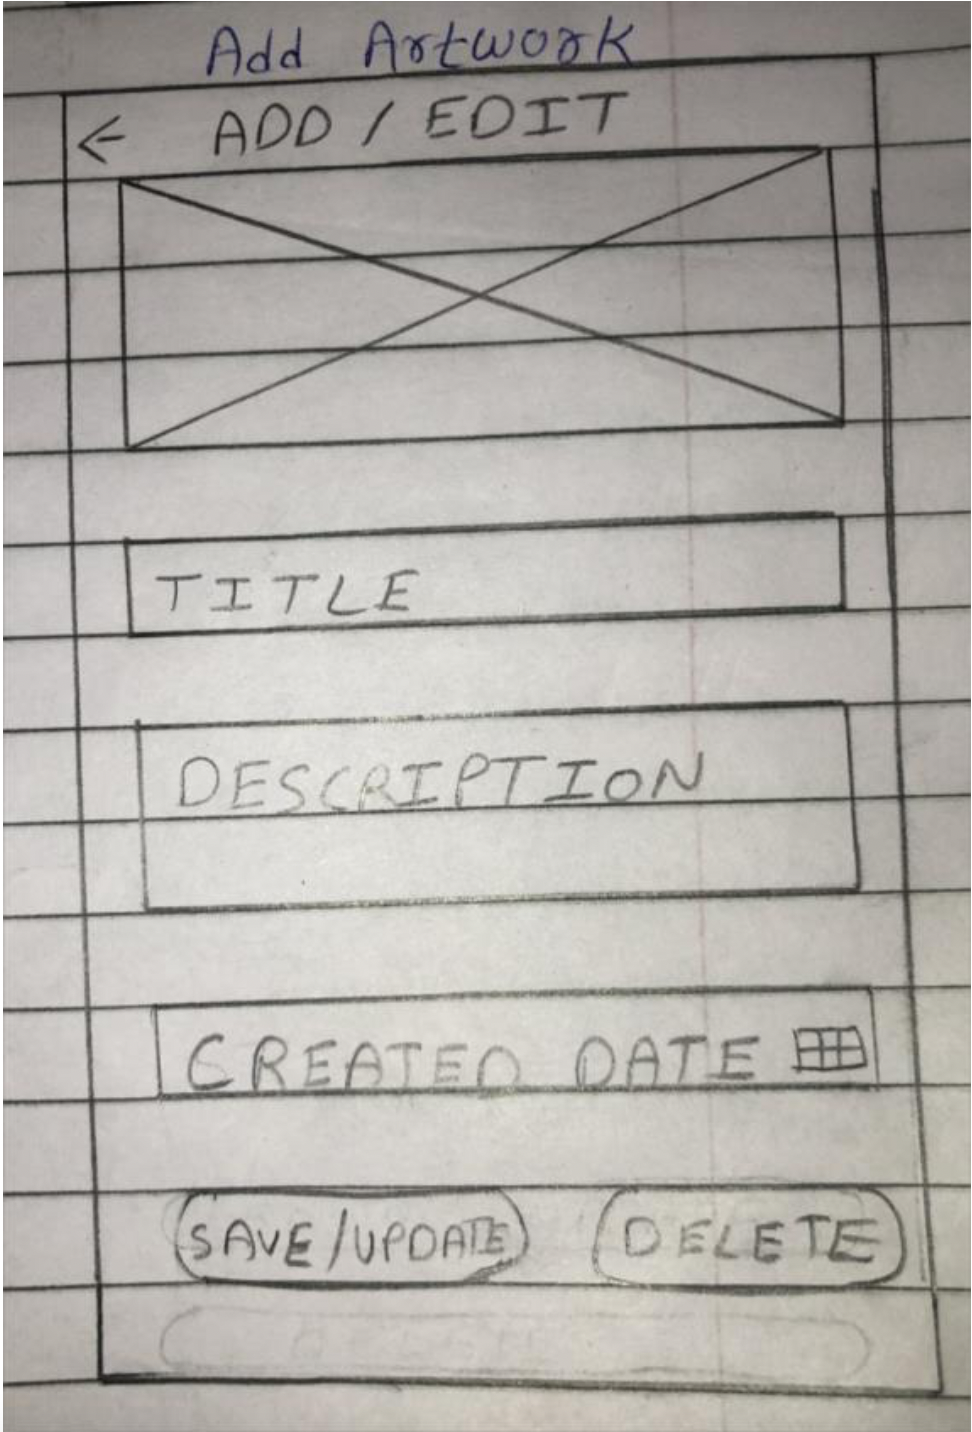 Add Artwork
← ADD / EDIT
TITLE
DESCRIPTION
CREATED DATE
SAVE/UPDATE DELETE